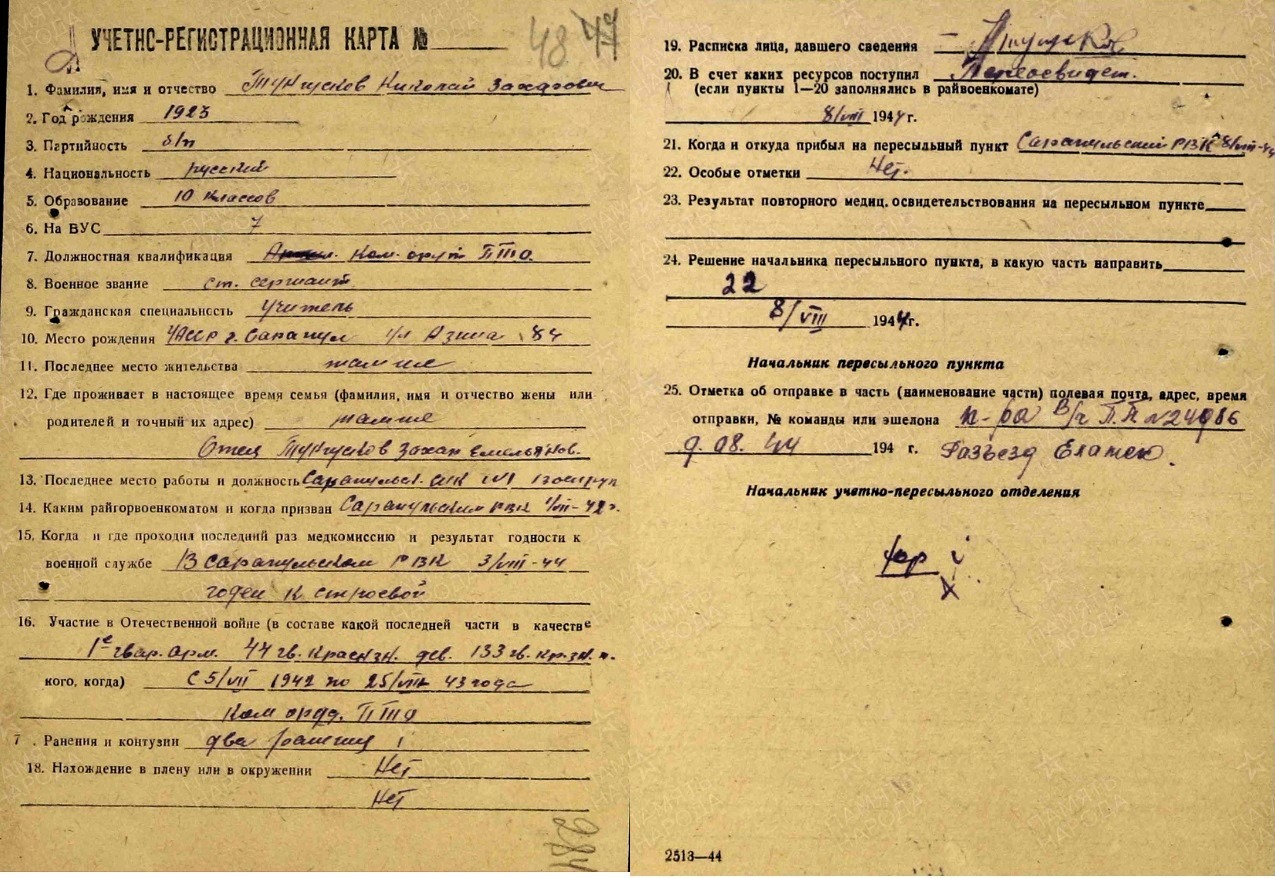 УЧЕТНО-РЕГИСТРАЦИОННАЯ КАРТА №
48 47
1. Фамилия, имя и отчество Тунгусков Николай Захарович
2. Год рождения 1923
3. Партийность б/п
4. Национальность русский
5. Образование 10 классов
6. На ВУС 7
7. Должностная квалификация Ком. оруд ПТО
8. Военное звание ст. сержант
9. Гражданская специальность учитель
10. Место рождения УАССР г. Сарапул ул Азина 84
11. Последнее место жительства там же
12. Где проживает в настоящее время семья (фамилия, имя и отчество жены или
родителей и точный их адрес) там же
Отец Тунгусков Захар Емельянов.
13. Последнее место работы и должность Сарапульск.
14. Каким райгорвоенкоматом и когда призван Сарапульским РВК 1/VII-42г.
15. Когда и где проходил последний раз медкомиссию и результат годности к
военной службе В Сарапульском РВК 3/VIII-44
годен к строевой
16. Участие в Отечественной войне (в составе какой последней части в качестве
1е гвар. арм. 44 гв. Красн зн. див. 133 гв. Кр. зн. п.
кого, когда) с 5/VII 1942 по 25/VIII 43 года
Ком оруд. ПТО
7 . Ранения и контузии два ранения
18. Нахождение в плену или в окружении Нет
Нет
284
19. Расписка лица, давшего сведения
20. В счет каких ресурсов поступил Переосвидет.
(если пункты 1—20 заполнялись в райвоенкомате)
8/VIII 1944 г.
21. Когда и откуда прибыл на пересыльный пункт Сарапульский РВК 8/VIII-44
22. Особые отметки Нет.
23. Результат повторного медиц. освидетельствования на пересыльном пункте
24. Решение начальника пересыльного пункта, в какую часть направить
22
8/VIII 1944г.
Начальник пересыльного пункта
25. Отметка об отправке в часть (наименование части) полевая почта, адрес, время
отправки, № команды или эшелона п-ра В/ч П.П. №24986
9.08.44 194 г. Разъезд
Начальник учетно-пересыльного отделения
2513—44